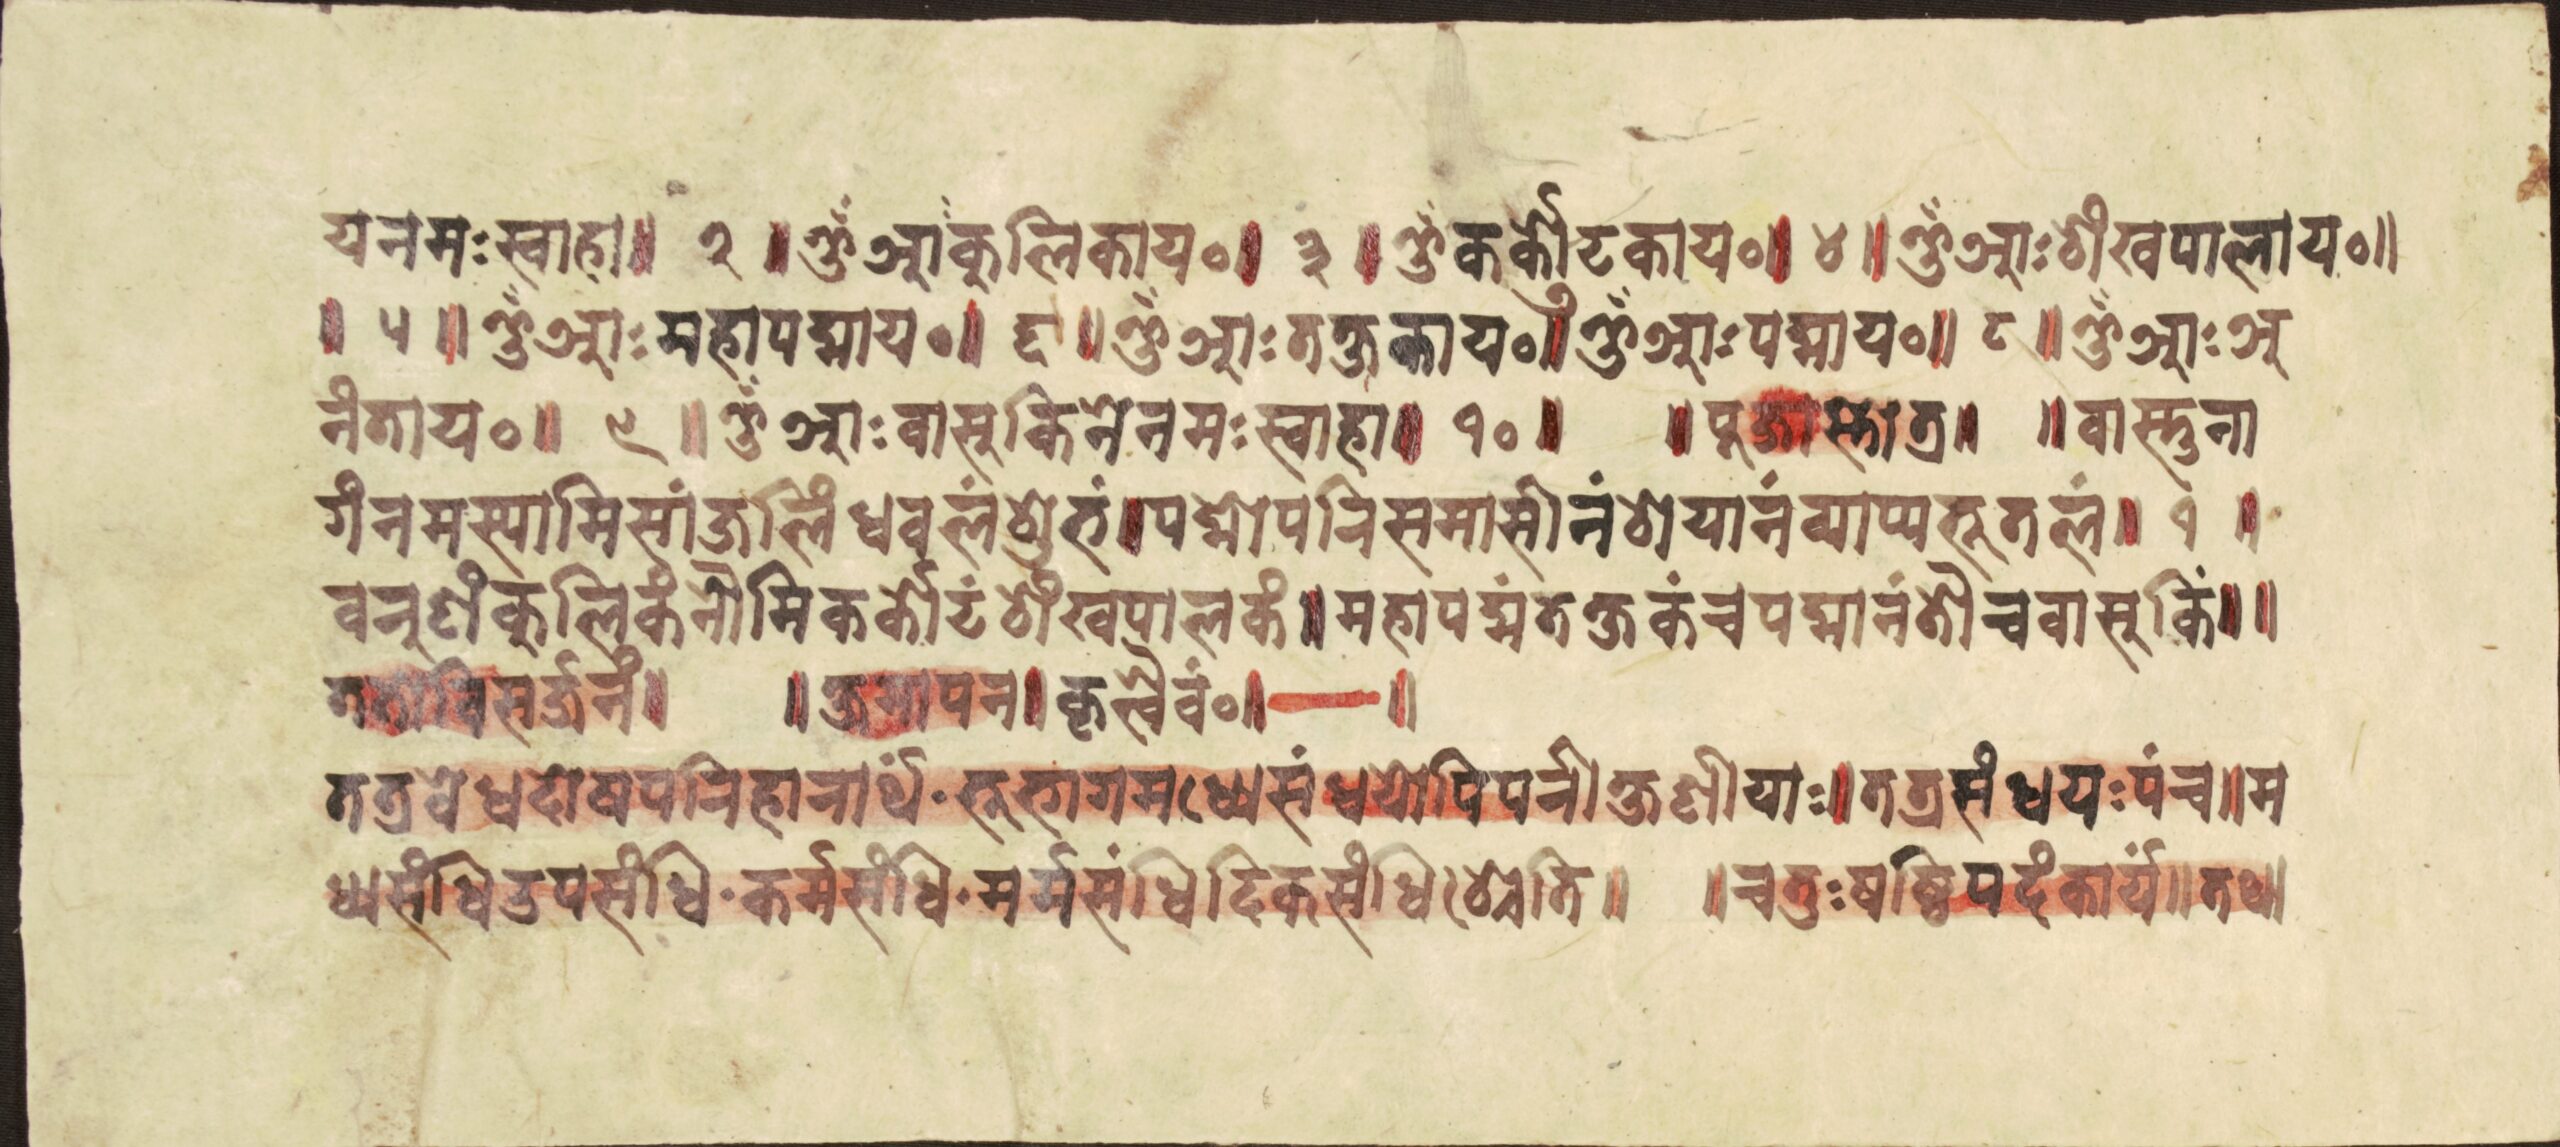 यनमःस्वाहा॥ २ ॥ॐआंकुलिकाय०॥ ३ ॥ॐकर्कोटकाय०॥ ४ ॥ॐआःशंखपालाय०॥
॥ ५ ॥ॐआःमहापद्माय०॥ ६ ॥ॐआःतक्षकाय०॥ॐआःपद्माय०॥ ८ ॥ॐआःअ
नंताय०॥ ९ ॥ॐआःवासुकिनेनमःस्वाहा॥ १० ॥ ॥पूजास्तोत्र॥ ॥वास्तुना
गंनमस्यामिसांजलिंधवलंशुभं॥पद्मोपरिसमासीनंशयानंव्याप्यभूतलं॥ १ ॥
वरुणंकुलिकंनौमिकर्कोटंशंखपालकं॥महापद्मंतक्षकंचपद्मानंतौचवासुकिं॥॥
ततोविसर्जनं॥ ॥क्षमापन॥कृत्वैवं०॥—॥
तत्रवेधदोषपरिहारार्थं·भूभागमध्येसंधयोपिपरीक्षणीयाः॥तत्रसंधयःपंच॥म
ध्यसंधिउपसंधि·कर्मसंधि·मर्मसंधिदिकसंधिश्चेति॥ ॥चतुःषष्ठिपदंकार्यं॥तथा